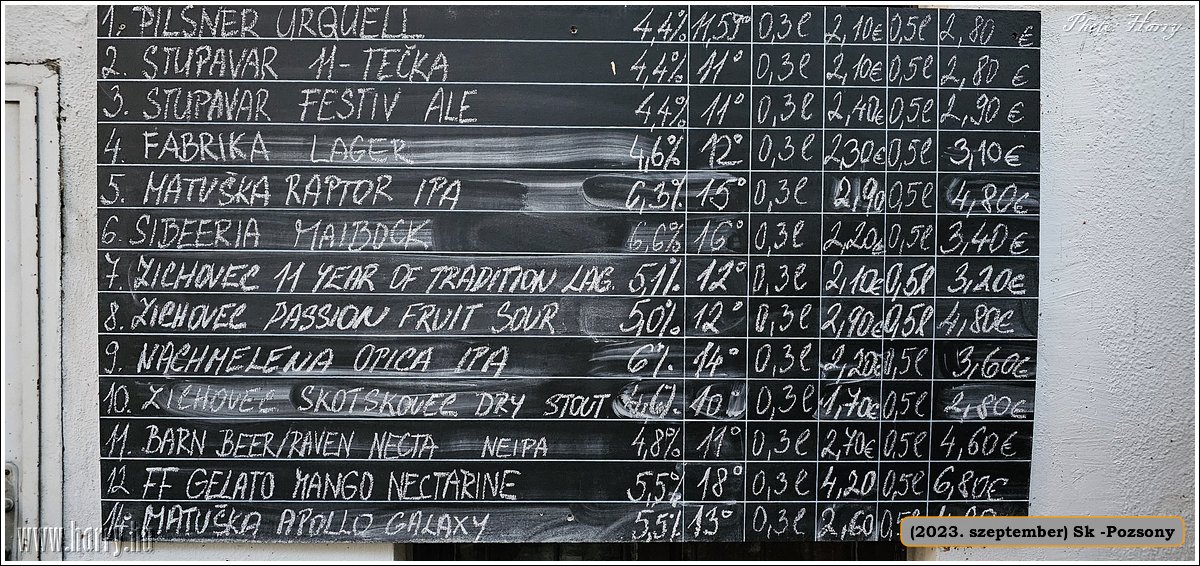 Photo Harry
1. PILSNER URQUELL 4,4% 11,59° 0,3l 2,10€ 0,5l 2,80 €
2. STUPAVAR 11-TEČKA 4,4% 11° 0,3l 2,10€ 0,5l 2,80 €
3. STUPAVAR FESTIV ALE 4,4% 11° 0,3l 2,40€ 0,5l 2,90 €
4. FABRIKA LAGER 4,6% 12° 0,3l 2,30€ 0,5l 3,10€
5. MATUŠKA RAPTOR IPA 6,3% 15° 0,3l 2,90 0,5l 4,80€
6. SIBEERIA MAIBOCK 6,6% 16° 0,3l 2,20€ 0,5l 3,40€
7. ZICHOVEC 11 YEAR OF TRADITION LAG. 5,1% 12° 0,3l 2,10€ 0,5l 3,20€
8. ZICHOVEC PASSION FRUIT SOUR 5,0% 12° 0,3l 2,90€ 0,5l 4,80€
9. NACHMELENA OPICA IPA 6% 14° 0,3l 0,5l 3,60€
10. ZICHOVEC SKOTSKOVEC DRY STOUT 10° 0,3l 1,70€ 0,5l 2,80€
11. BARN BEER/RAVEN NECTA NEIPA 4,8% 11° 0,3l 2,70€ 0,5l 4,60€
12 FF GELATO MANGO NECTARINE 5,5% 18° 0,3l 4,20 0,5l 6,80€
14. MATUŠKA APOLLO GALAXY 5,5% 13° 0,3l 2,60
www.harry.hu
(2023. szeptember) Sk -Pozsony